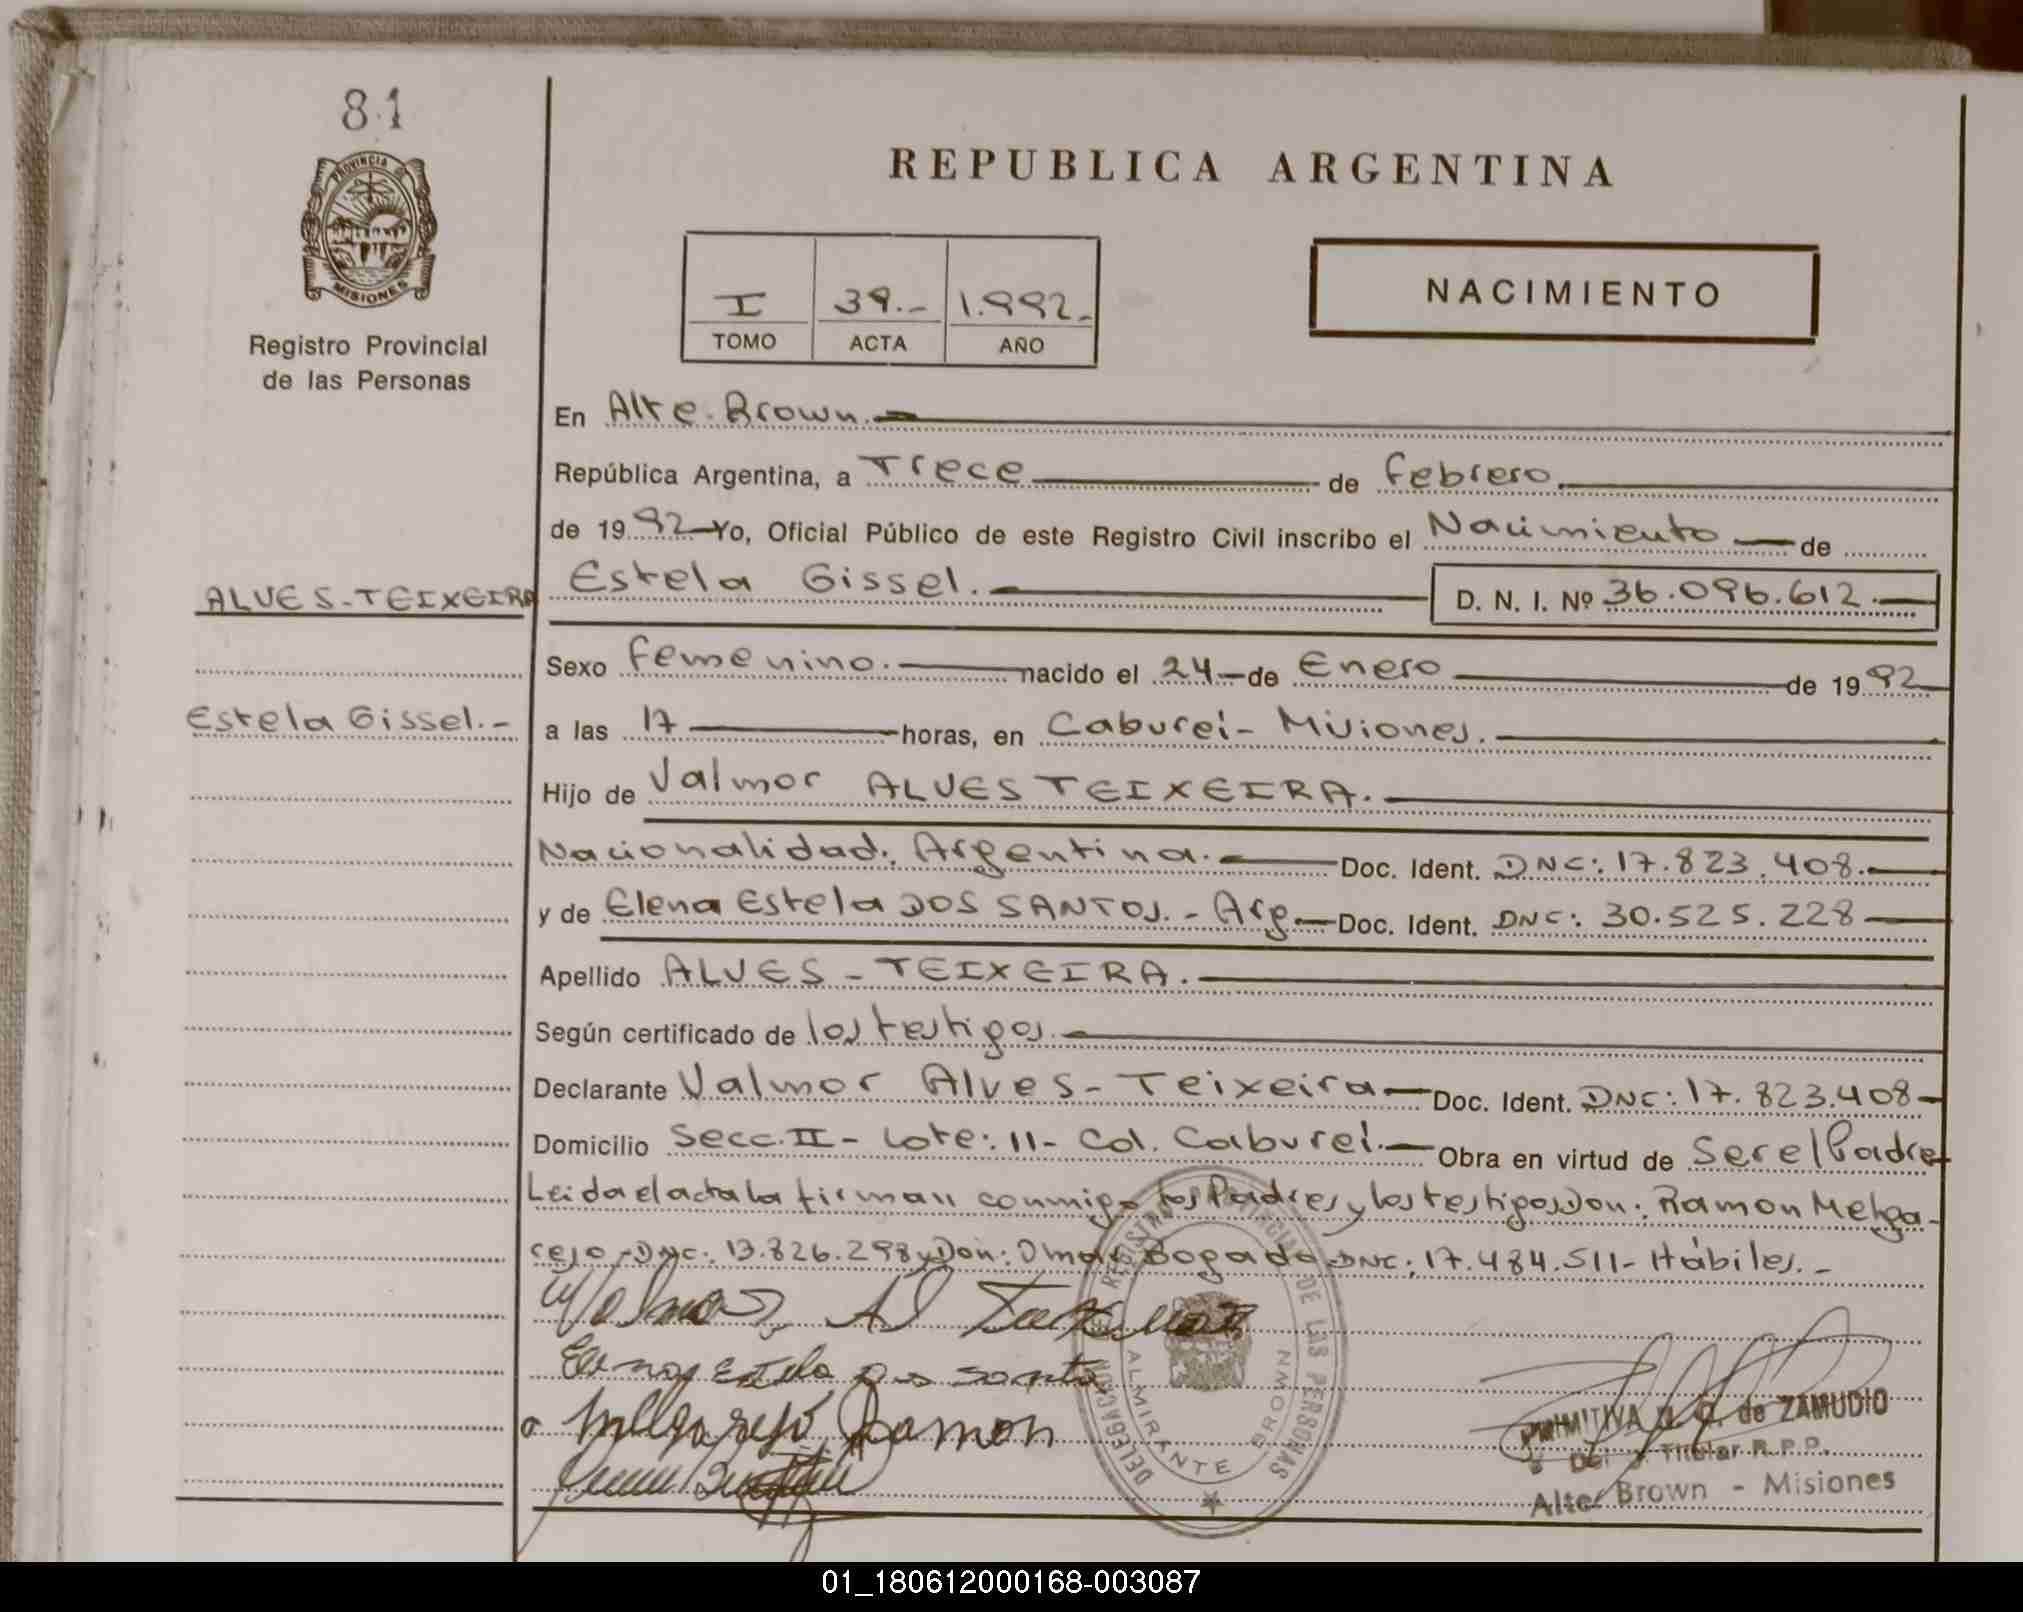 81
PROVINCIA DE
MISIONES
Registro Provincial
de las Personas
REPUBLICA ARGENTINA
I 39.- 1.992-
TOMO ACTA AÑO
NACIMIENTO
En Alte. Brown.
República Argentina, a Trece de febrero.
de 1992 Yo, Oficial Público de este Registro Civil inscribo el Nacimiento de
ALVES-TEIXEIRA
Estela Gissel. D. N. I. Nº 36.096.612.
Sexo femenino. nacido el 24 de Enero de 1992
Estela Gissel.-
a las 17 horas, en Caburei- Misiones.
Hijo de Valmor ALVES TEIXEIRA.
Nacionalidad: Argentina. Doc. Ident. DNC: 17.823.408.
y de Elena Estela DOS SANTOS. - Arg. Doc. Ident. DNC: 30.525.228
Apellido ALVES - TEIXEIRA.
Según certificado de los testigos.
Declarante Valmor Alves - Teixeira Doc. Ident. DNC: 17.823.408
Domicilio Secc. II - Lote: 11 - Col. Caburei. Obra en virtud de Ser el Padre
Leida el acta la firman conmigo los Padres y los testigos Don: Ramon Melga-
rejo - DNC: 13.826.298 y Don: Omar Bogado DNC: 17.484.511 - Hábiles. -
Melgarejo Ramon
DELEGACION REGISTRO PROVINCIAL DE LAS PERSONAS
ALMIRANTE BROWN
PRIMITIVA de ZAMUDIO
Titular R.P.P.
Alte. Brown - Misiones
01_180612000168-003087